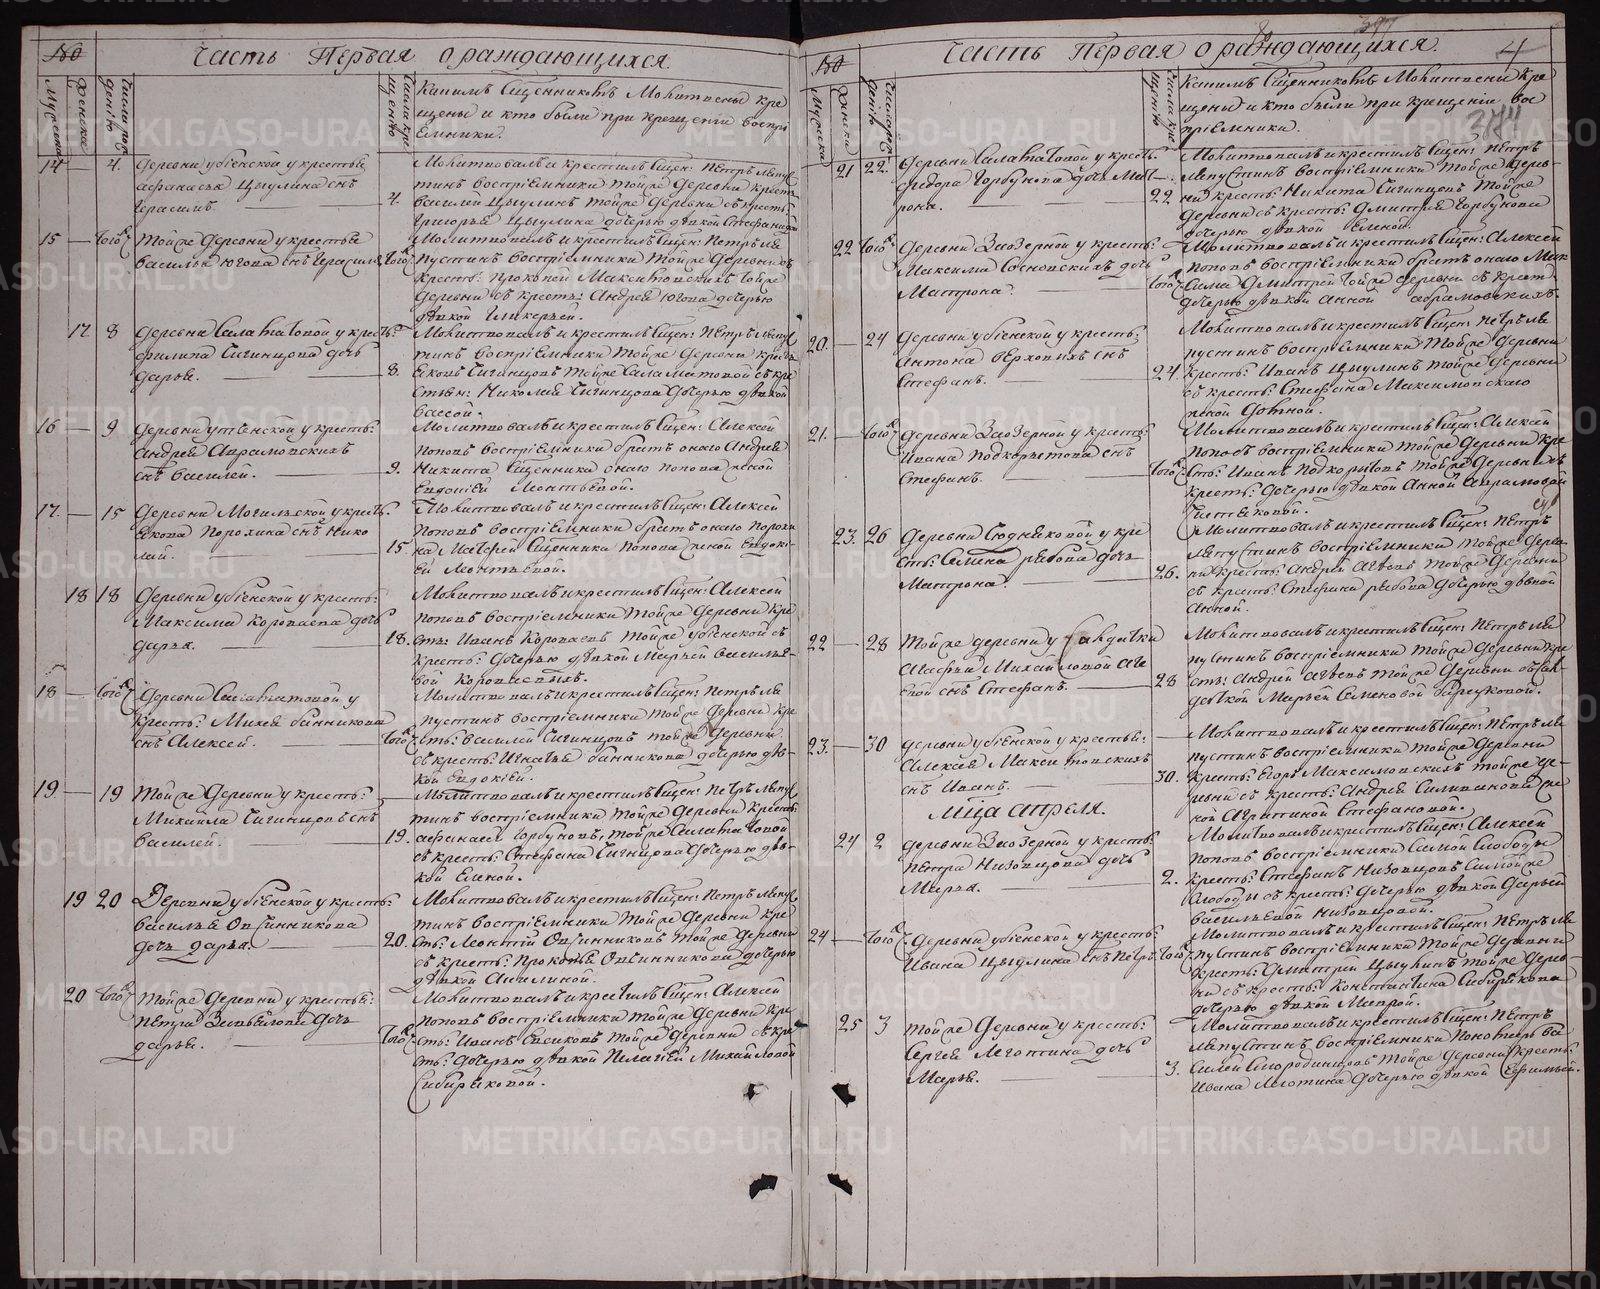 Часть Первая о раждающихся.
№
Мужеска
Женска
Числа рож
денiю
Числа кре
щенiю
Какимъ Священникомъ Молитвены кре
щены и кто были при крещенiи воспрi
емники.
14 — 4. Деревни убiенской у крестья
Афанасья Цыулина снъ
Герасимъ.
4.
Молитвовалъ и крестилъ свщен: Петръ Лепус
тинъ воспрiемники тойже деревни крестья
василей Цыулинъ тойже деревни съ крестья
Григорья Цыулина дочерью дѣвкой Стефанидой
15 — того ж Тойже деревни у крестья
василья Югова снъ Герасимъ
того ж
Молитвовалъ и крестилъ свщен: Петръ Ле
пустинъ воспрiемники тойже деревни
кресть: Прокопей Максимовскихъ тойже
деревни съ кресть: Андрея Югова дочерью
дѣвкой Гликерьей.
17 8 Деревни Саламатовой у кресть:
филипа Чигинцова дочь
Дарья.
8.
Молитвовалъ и крестилъ свщен: Петръ Лепус
тинъ воспрiемники тойже деревни кресть
Чигинцовъ тойже Саламатовой съ кре
стьян: Николая Чигинцова дочерью дѣвкой
вассой.
16 — 9 Деревни утiенской у кресть:
Андрея Аврамовскихъ
снъ василей.
9.
Молитвовалъ и крестилъ свщен: Алексей
Поповъ воспрiемники братъ онаго Андрея
Никита священника онаго Попова женой
Евдокiей Леонтьевой.
17. — 15 Деревни Могильской у кресть.
Якова Порохина снъ Нико
лай.
15.
Молитвовалъ и крестилъ свщен: Алексей
Поповъ воспрiемники братъ онаго Порохи
на Матфей священника Попова женой Евдокi
ей Леонтьевой.
18 18 Деревни убiенской у кресть:
Максима Коропаева дочь
Дарья.
18.
Молитвовалъ и крестилъ свщен: Алексей
Поповъ воспрiемники тойже деревни кре
сть: Иванъ Коропаевъ тойже убiенской съ
кресть: дочерью дѣвкой Марьей василье
вой Коропаевыхъ.
18 — того ж Деревни Саламатовой у
кресть: Михея банникова
снъ Алексей.
того ж
Молитвовалъ и крестилъ свщен: Петръ Ле
пустинъ воспрiемники тойже деревни кре
сть: василей Чигинцовъ тойже деревни
съ кресть Игнатья банникова дочерью дѣв-
кой Евдокiей.
19 — 19 Тойже деревни у кресть:
Михаила Чигинцовъ снъ
василей.
19.
Молитвовалъ и крестилъ свщен: Петръ Лепус
тинъ воспрiемники тойже деревни кресть:
Афанасей Горбуновъ, тойже Саламатовой
съ кресть: Стефана Чигнцова дочерью дѣв-
кой Еленой.
19 20 Деревни убiенской у кресть:
василья Овчинникова
дочь Дарья.
20.
Молитвовалъ и крестилъ свщен: Петръ Лепус
тинъ воспрiемники тойже деревни кре
сть: Леонтiй Овчинниковъ тойже деревни
съ кресть: Прокопья Овчинникова дочерью
дѣвкой Акилиной.
20 того ж Тойже деревни у крестья:
Петра дочь
Дарья.
того ж
Молитвовалъ и крестилъ свщен: Алексей
Поповъ воспрiемники тойже деревни кре
сть: Иванъ тойже деревни съ кре
сть: дочерью дѣвкой Пелагiей Михайловой
Сибиряковой.
Часть Первая о раждающихся.
4
№
Мужеска
Женска
Числа рож
денiю
Числа кре
щенiю
Какимъ Священникомъ Молитвены кре
щены и кто были при крещенiи вос
прiемники.
21 22. Деревни Саламатовой у кресть.
Федора Горбунова дочь Мат
рона.
22.
Молитвовалъ и крестилъ свщен: Петръ
Лепустинъ воспрiемники тойже дерев-
ни кресть: Никита Чигинцовъ тойже
деревни съ кресть: Дмитрея Горбунова
дочерью дѣвкой Еленой.
22 того ж Деревни Заозерной у кресть:
Максима Сосновскихъ дочь
Матрона.
того ж
Молитвовалъ и крестилъ свщен: Алексей
Поповъ воспрiемники братъ онаго Мак
сима Дмитрей тойже деревни съ кресть
дочерью дѣвкой Анной Абрамовскихъ.
20. — 24 Деревни убiенской у кресть:
Антона Верховыхъ снъ
Стефанъ.
24.
Молитвовалъ и крестилъ свщен: Петръ Ле
пустинъ воспрiемники тойже деревни
кресть: Иванъ Цыулинъ тойже деревни
съ кресть: Стефана Максимовскаго
женой
21. — того ж Деревни Заозерной у кресть:
Ивана Подкорытова снъ
Стефанъ.
того ж
Молитвовалъ и крестилъ свщен: Алексей
Поповъ воспрiемники тойже деревни кре
сть: Иванъ Подкорытовъ тойже деревни съ
кресть: дочерью дѣвкой Анной Аврамовой
23. 26 Деревни Сюдняковой у кре
сть: Семена рябова дочь
Матрона.
26.
Молитвовалъ и крестилъ свщен: Петръ
Лепустинъ воспрiемники тойже дерев
ни кресть: Андрей Агѣевъ тойже деревни
съ кресть: Стефана рябова дочерью дѣвкой
Анной.
22 — 28 Тойже деревни у солдатки
Агафьи Михайловой Аге
вой снъ Стефанъ.
28
Молитвовалъ и крестилъ свщен: Петръ Ле
пустинъ воспрiемники тойже деревни кре
сть: Андрей Агѣевъ тойже деревни
дѣвкой Марьей Семеновой
23. — 30 Деревни убiенской у крестья:
Алексея Максимовскихъ
снъ Иванъ.
30.
Молитвовалъ и крестилъ свщен: Петръ Ле
пустинъ воспрiемники тойже деревни
кресть: Егоръ Максимовскихъ тойже де-
ревни съ кресть: Андрея Силиванова же
ной Агрипиной Стефановой.
Мца Апреля.
24 2 Деревни Заозерной у кресть:
Петра Низовцова дочь
Марья.
2.
Молитвовалъ и крестилъ свщен: Алексей
Поповъ воспрiемники Самой Слободы
кресть: Стефанъ Низовцовъ Самойже
Слободы съ кресть: дочерью дѣвкой Дарьей
васильевой Низовцовой.
24 — того ж Деревни убiенской у кресть:
Ивана Цыулина снъ Петръ
того ж
Молитвовалъ и крестилъ свщен: Петръ Ле
пустинъ воспрiемники тойже деревни
кресть: Дмитрей Цыулинъ тойже дерев-
ни съ кресть: Константина Сибирякова
дочерью дѣвкой Маврой.
25 3 Тойже деревни у кресть:
Сергея Леготина дочь
Марья.
3.
Молитвовалъ и крестилъ свщен: Петръ
Лепустинъ воспрiемники Пономарь ва
силей Смородинцовъ тойже деревни кресть:
Ивана дочерью дѣвкой Ефимьей.